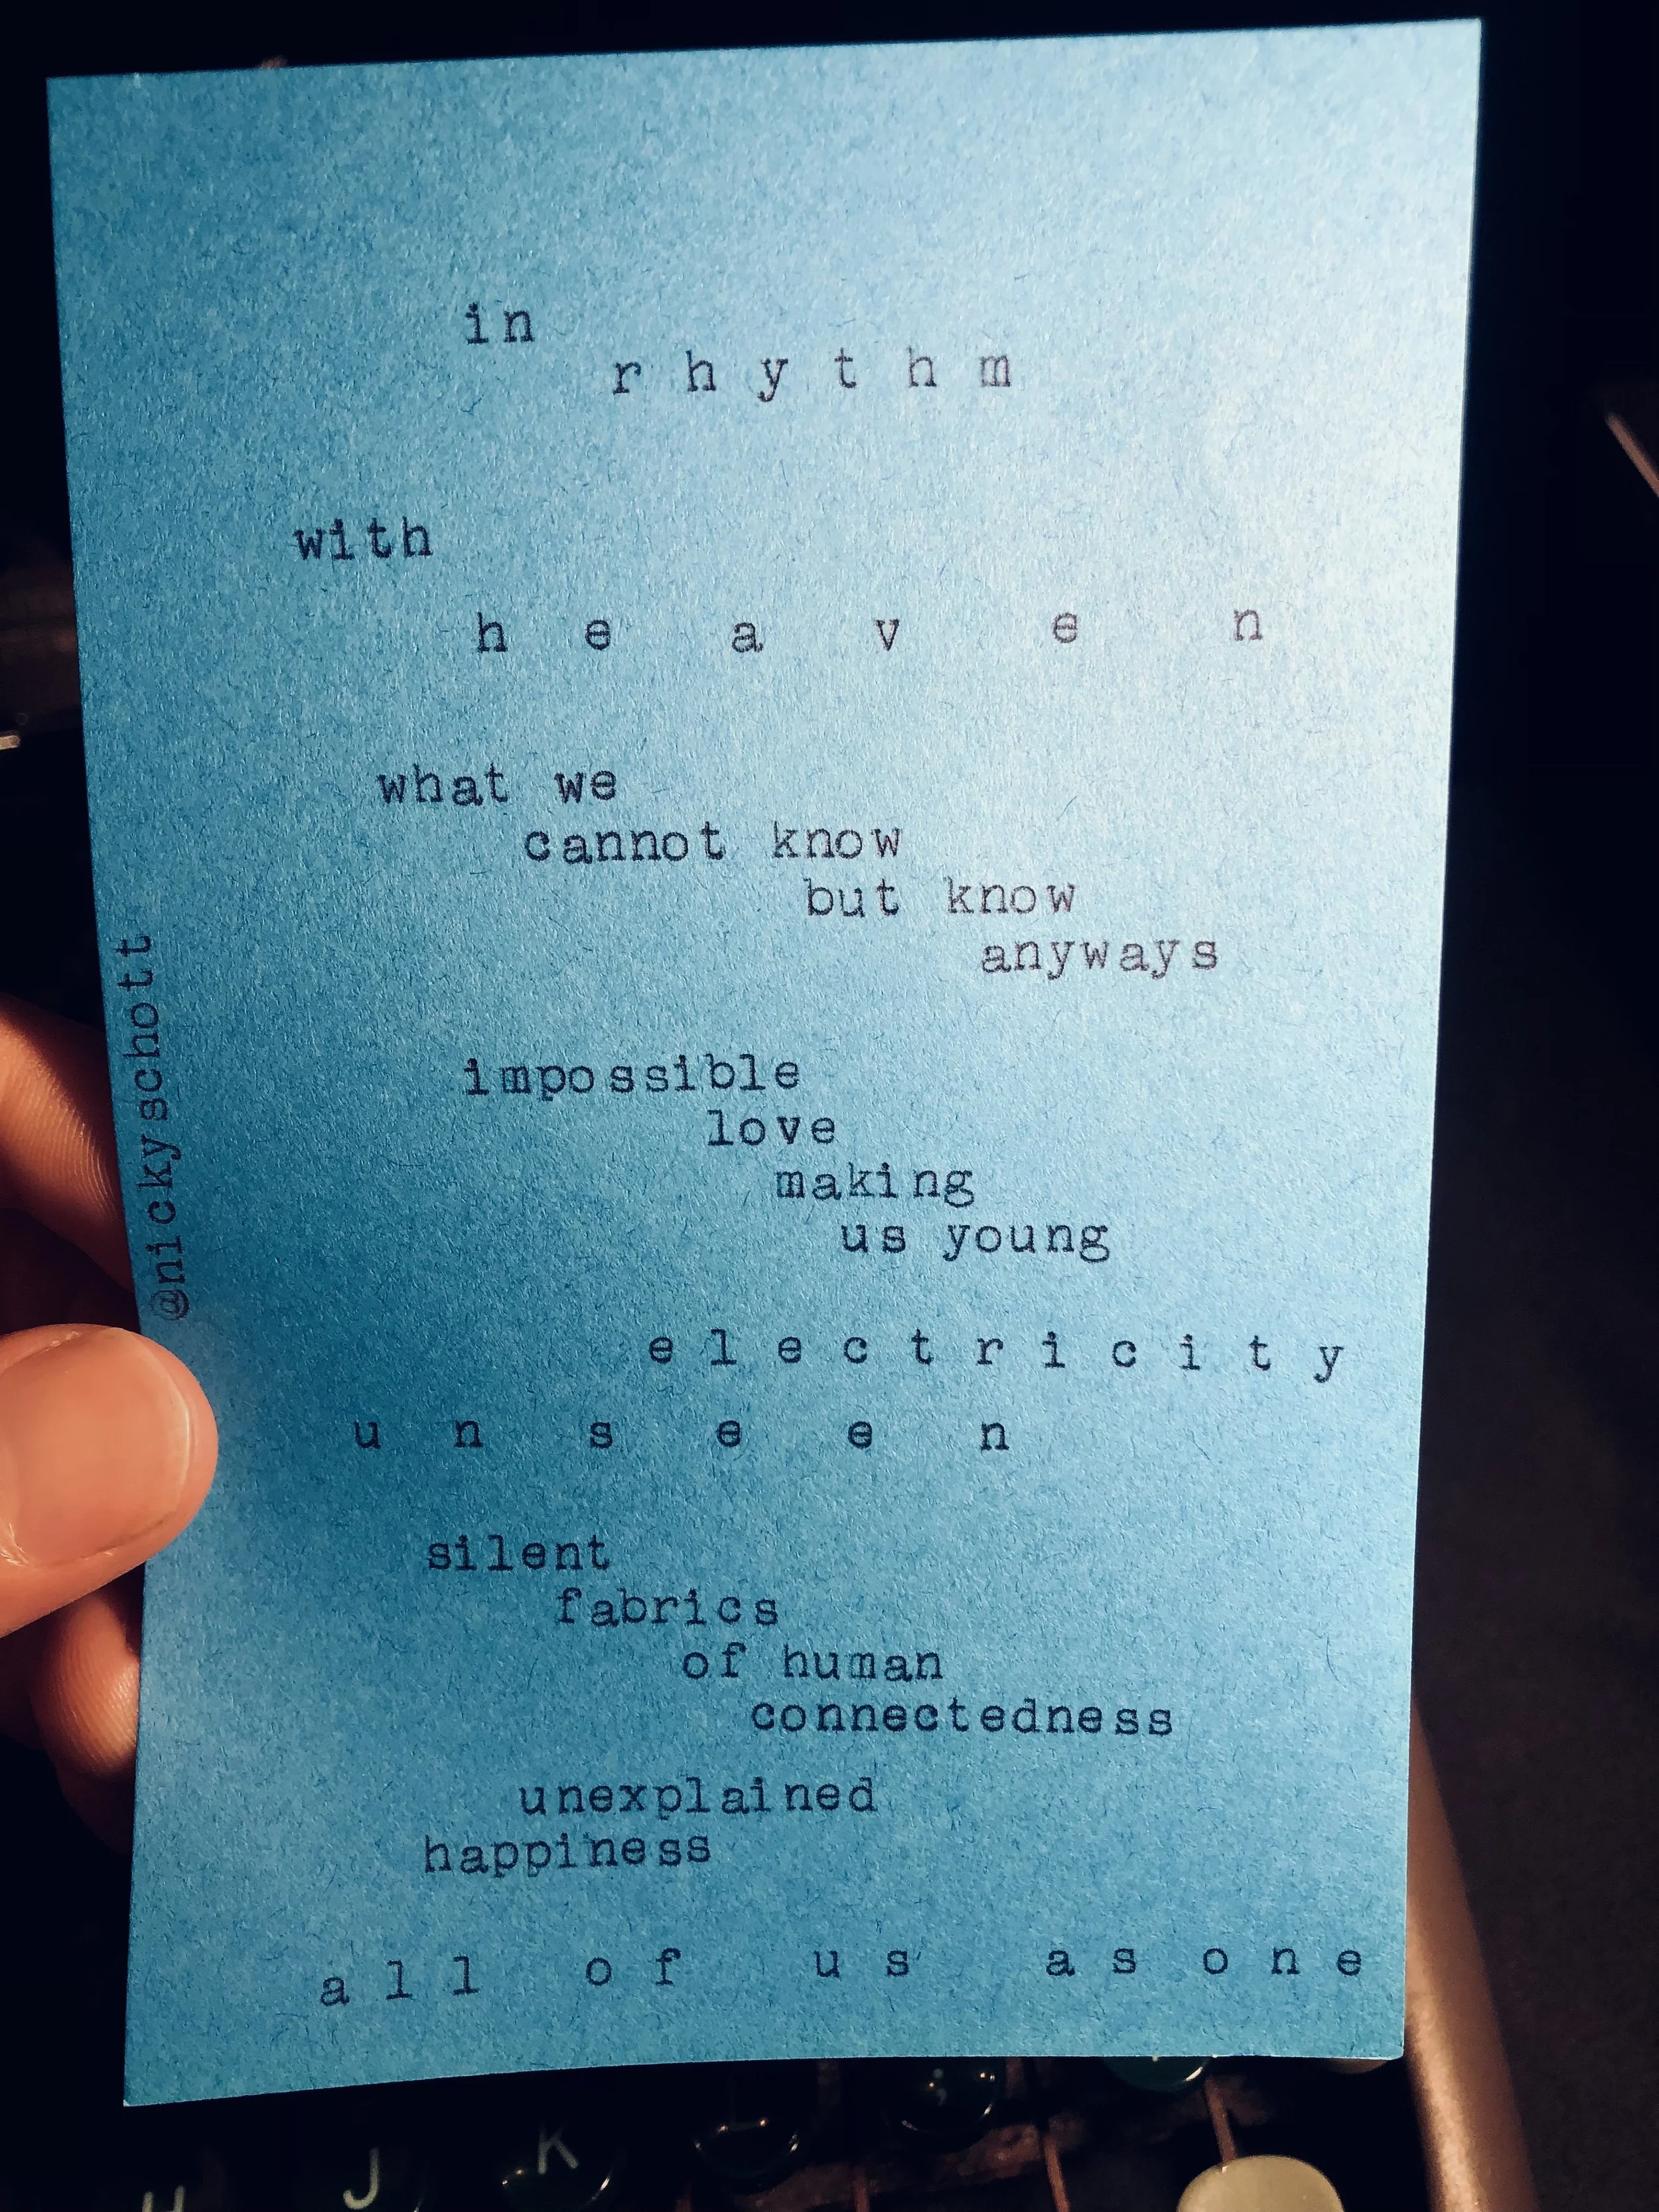 in
r h y t h m
with
h e a v e n
what we
cannot know
but know
anyways
impossible
love
making
us young
e l e c t r i c i t y
u n s e e n
silent
fabrics
of human
connectedness
unexplained
happiness
a l l o f u s a s o n e
@nickyschott
H J K ;